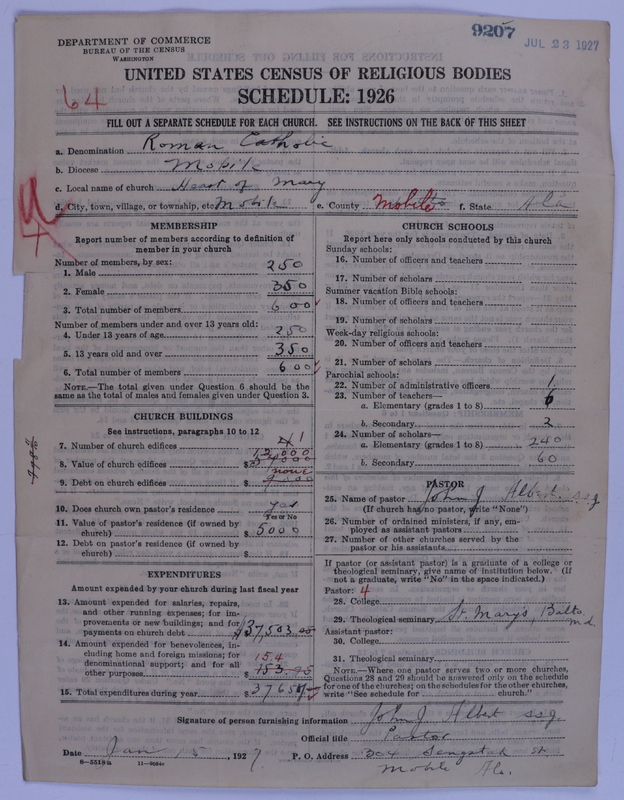 9207
JUL 23 1927
DEPARTMENT OF COMMERCE
BUREAU OF THE CENSUS
WASHINGTON
UNITED STATES CENSUS OF RELIGIOUS BODIES
SCHEDULE: 1926
64
FILL OUT A SEPARATE SCHEDULE FOR EACH CHURCH. SEE INSTRUCTIONS ON THE BACK OF THIS SHEET
a. Denomination Roman Catholic
b. Diocese Mobile
c. Local name of church Heart of Mary
d. City, town, village, or township, etc. Mobile e. County Mobile f. State Ala
MEMBERSHIP
Report number of members according to definition of
member in your church
Number of members, by sex:
1. Male 250
2. Female 350
3. Total number of members 600
Number of members under and over 13 years old:
4. Under 13 years of age 250
5. 13 years old and over 350
6. Total number of members 600
NOTE.—The total given under Question 6 should be the
same as the total of males and females given under Question 3.
CHURCH BUILDINGS
See instructions, paragraphs 10 to 12
7. Number of church edifices 1
8. Value of church edifices $
9. Debt on church edifices $ none
10. Does church own pastor's residence yes
Yes or No
11. Value of pastor's residence (if owned by
church) $ 5000
12. Debt on pastor's residence (if owned by
church) $
EXPENDITURES
Amount expended by your church during last fiscal year
13. Amount expended for salaries, repairs,
and other running expenses; for im-
provements or new buildings; and for
payments on church debt $37,503
14. Amount expended for benevolences, in-
cluding home and foreign missions; for
denominational support; and for all
other purposes $ 154
15. Total expenditures during year $ 37657
CHURCH SCHOOLS
Report here only schools conducted by this church
Sunday schools:
16. Number of officers and teachers
17. Number of scholars
Summer vacation Bible schools:
18. Number of officers and teachers
19. Number of scholars
Week-day religious schools:
20. Number of officers and teachers
21. Number of scholars
Parochial schools:
22. Number of administrative officers 1
23. Number of teachers—
a. Elementary (grades 1 to 8) 6
b. Secondary 2
24. Number of scholars—
a. Elementary (grades 1 to 8) 240
b. Secondary 60
PASTOR
25. Name of pastor John J Albert ssj
(If church has no pastor, write "None")
26. Number of ordained ministers, if any, em-
ployed as assistant pastors
27. Number of other churches served by the
pastor or his assistants
If pastor (or assistant pastor) is a graduate of a college or
theological seminary, give name of institution below. (If
not a graduate, write "No" in the space indicated.)
Pastor: 4
28. College
29. Theological seminary St. Mary's, Balto Md.
Assistant pastor:
30. College
31. Theological seminary
NOTE.—Where one pastor serves two or more churches,
Questions 28 and 29 should be answered only on the schedule
for one of the churches; on the schedules for the other churches,
write "See schedule for church."
Signature of person furnishing information John J Albert ssj
Official title Pastor
Date Jan 15, 1927 P. O. Address 304 st
Mobile Ala.
8—5518a 11—9024